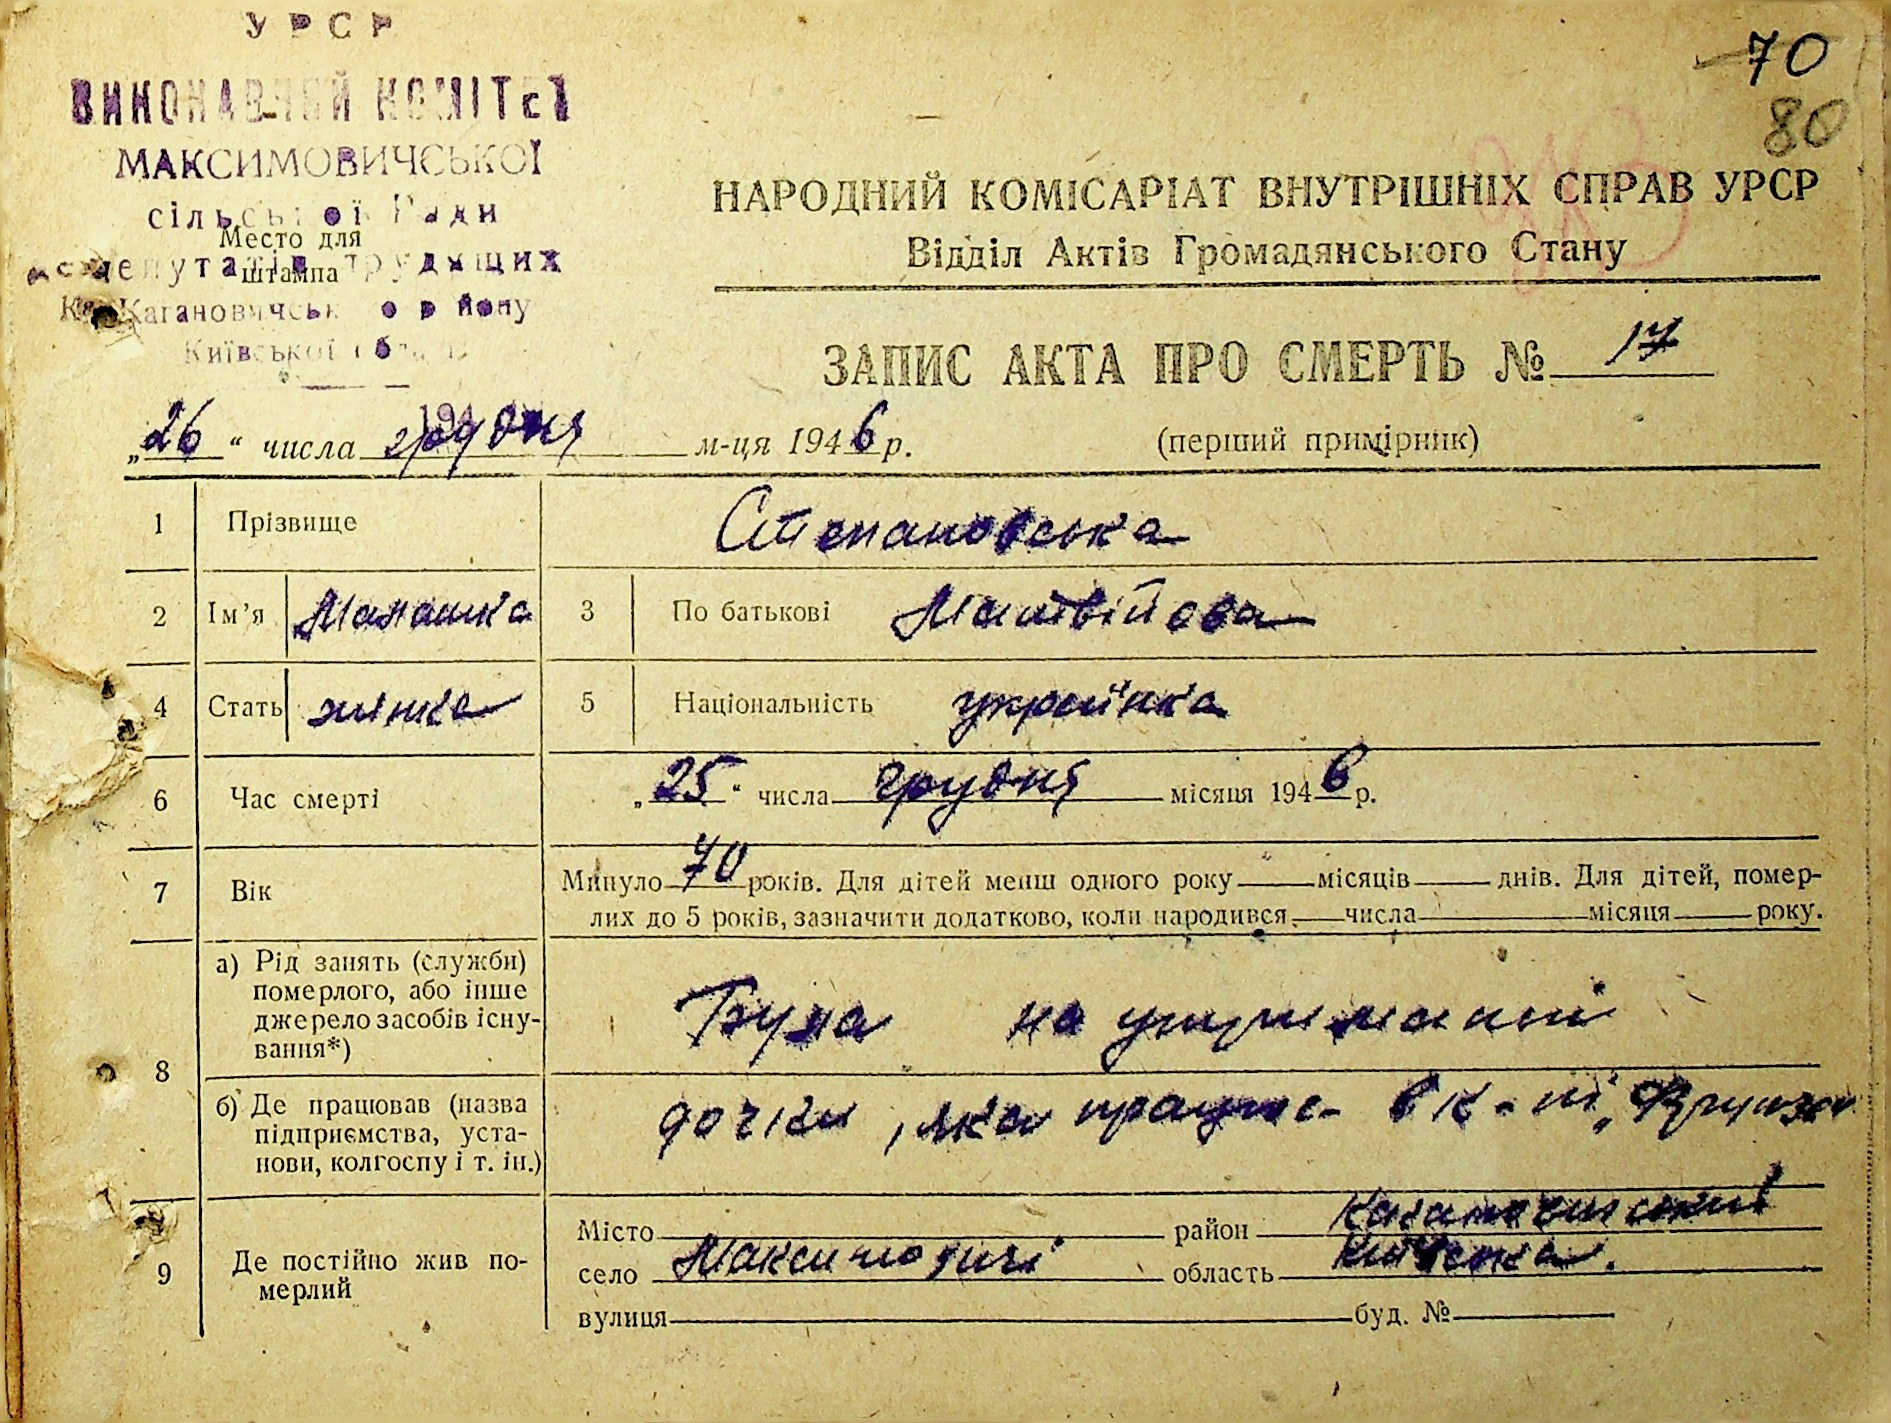 УРСР
ВИКОНАВЧИЙ КОМІТЕТ
МАКСИМОВИЧСЬКОЇ
сільської Ради
Место для
депутатів трудящих
штампа
Кагановичськ о р йону
Київської обл
194
70
80
НАРОДНИЙ КОМІСАРІАТ ВНУТРІШНІХ СПРАВ УРСР
Відділ Актів Громадянського Стану
ЗАПИС АКТА ПРО СМЕРТЬ № 17
„26“ числа грудня м-ця 1946 р.
(перший примірник)
1 Прізвище Степановська
2 Ім’я Маланка 3 По батькові Матвійовна
4 Стать жінка 5 Національність українка
6 Час смерті „25“ числа грудня місяця 1946 р.
7 Вік Минуло 70 років. Для дітей менш одного року місяців днів. Для дітей, помер-
лих до 5 років, зазначити додатково, коли народився числа місяця року.
8 а) Рід занять (служби)
померлого, або інше
джерело засобів існу-
вання*)
Була на утриманні
б) Де працював (назва
підприємства, уста-
нови, колгоспу і т. ін.)
дочки, яка працює в к-пі „Фрунзе
9 Де постійно жив по-
мерлий
Місто район Кагановичський
село Максимовичі область Київська.
вулиця буд. №